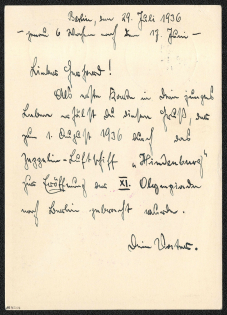 Berlin, am 29. Juli 1936
- genau 6 Wochen nach dem 17. Juni -
Liebes
Als erste Karte in Deinem jungen
Leben erhältst du diesen Gruß, der
zum 1. August 1936 durch das
Zeppelin-Luftschiff „Hindenburg"
zur Eröffnung der XI. Olympiade
nach Berlin gebracht wurde.
Dein Vater.